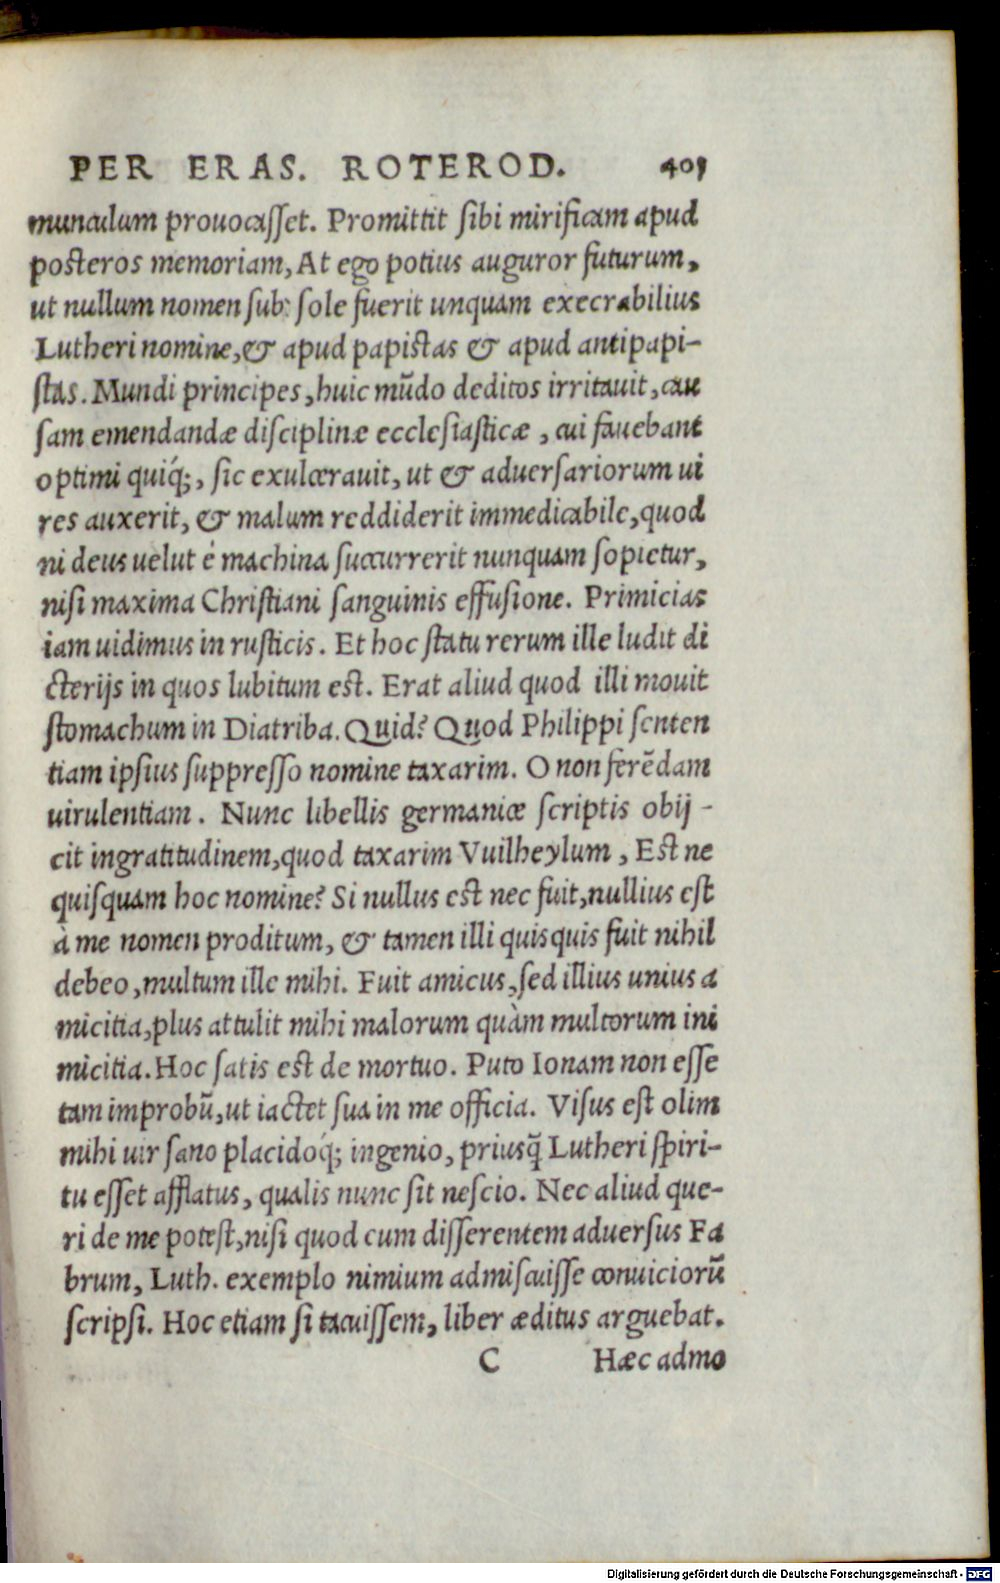 PER ERAS. ROTEROD. 409
munculum prouocasset. Promittit sibi mirificam apud
posteros memoriam, At ego potius auguror futurum,
ut nullum nomen sub sole fuerit unquam execrabilius
Lutheri nomine, & apud papistas & apud antipapi-
stas. Mundi principes, huic mũdo deditos irritauit, cau
sam emendandæ disciplinæ ecclesiasticæ, cui fauebant
optimi quiq́;, sic exulcerauit, ut & aduersariorum ui
res auxerit, & malum reddiderit immedicabile, quod
ni deus uelut é machina succurrerit nunquam sopietur,
nisi maxima Christiani sanguinis effusione. Primicias
iam uidimus in rusticis. Et hoc statu rerum ille ludit di
cterijs in quos lubitum est. Erat aliud quod illi mouit
stomachum in Diatriba. Quid? Quod Philippi senten
tiam ipsius suppresso nomine taxarim. O non ferẽdam
uirulentiam. Nunc libellis germanicæ scriptis obij-
cit ingratitudinem, quod taxarim Vuilheylum, Est ne
quisquam hoc nomine? Si nullus est nec fuit, nullius est
à me nomen proditum, & tamen illi quisquis fuit nihil
debeo, multum ille mihi. Fuit amicus, sed illius unius a
micitia, plus attulit mihi malorum quàm multorum ini
micitia. Hoc satis est de mortuo. Puto Ionam non esse
tam improbũ, ut iactet sua in me officia. Visus est olim
mihi uir sano placidoq́; ingenio, priusq̃ Lutheri spiri-
tu esset afflatus, qualis nunc sit nescio. Nec aliud que-
ri de me potest, nisi quod cum disserentem aduersus Fa
brum, Luth. exemplo nimium admiscuisse conuiciorũ
scripsi. Hoc etiam si tacuissem, liber æditus arguebat.
C Hæc admo
Digitalisierung gefördert durch die Deutsche Forschungsgemeinschaft - DFG